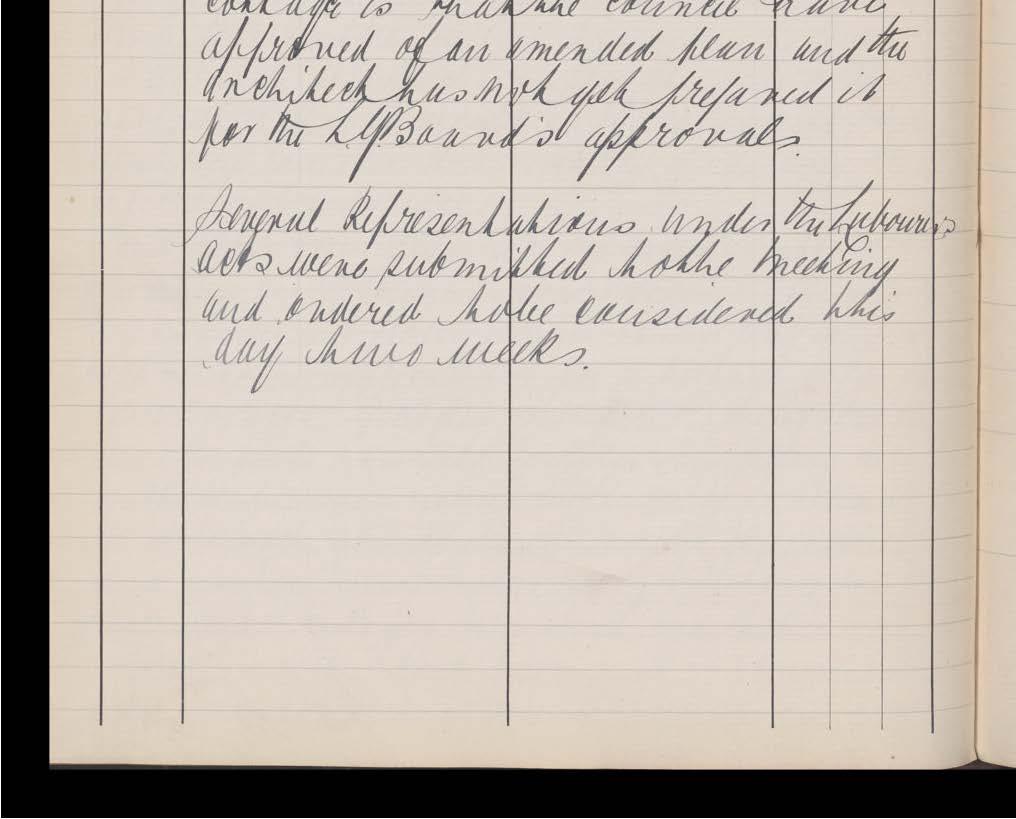 cottage is that the council have
approved of an amended plan and the
architect has not yet prepared it
for the L.G. Board's approvals.
Several Representations under the Labourers
acts were submitted to the meeting
and ordered to be considered this
day two weeks.